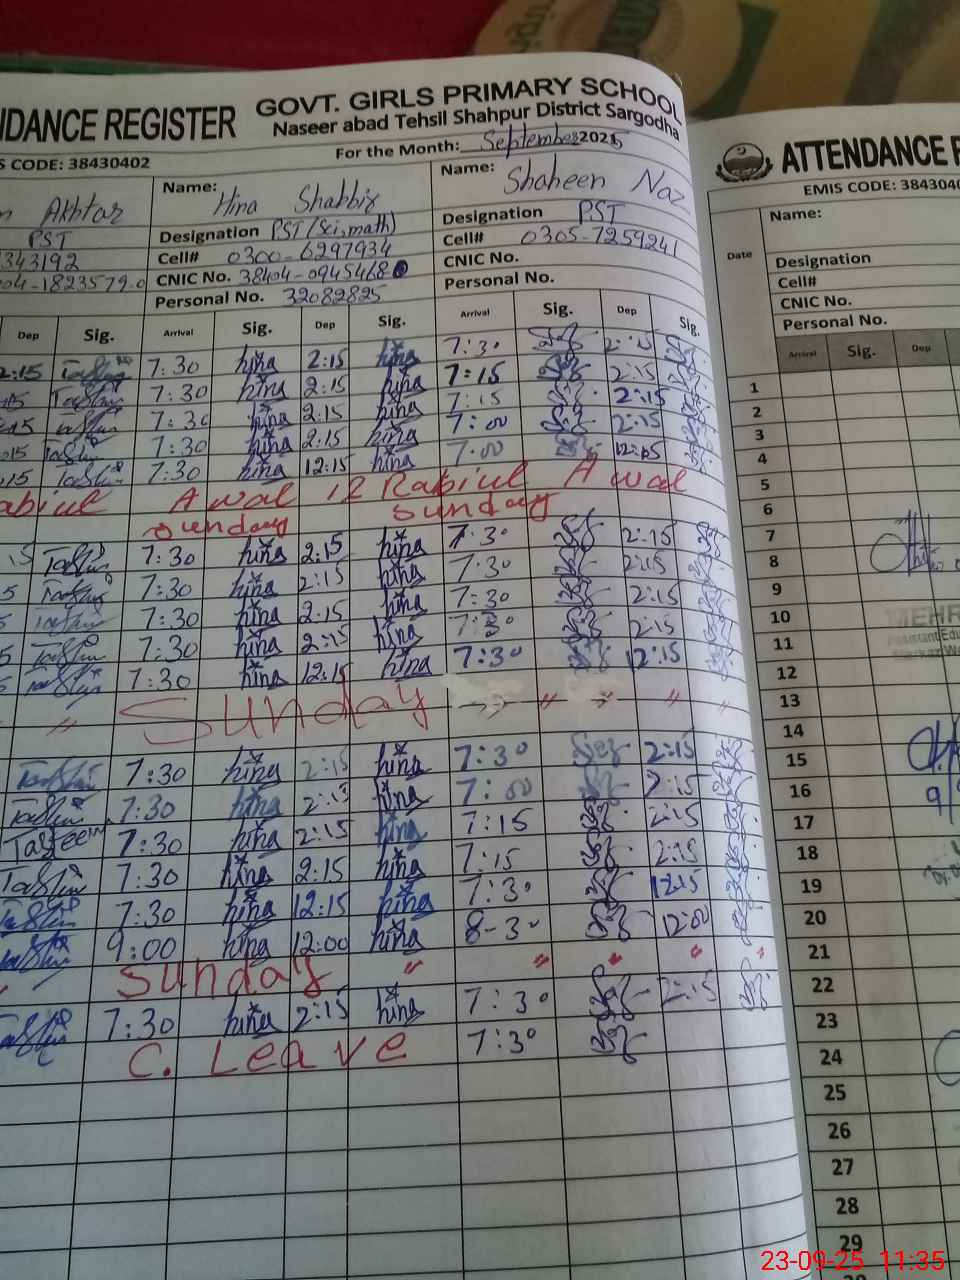 NDANCE REGISTER GOVT. GIRLS PRIMARY SCHOOL
Naseer abad Tehsil Shahpur District Sargodha
S CODE: 38430402 For the Month: September 2025
n Akhtar Name: Hina Shabbir Name: Shaheen Naz
PST Designation PST (Sci, math) Designation PST
343192 Cell# 0300-6297934 Cell# 0305-7259241
04-1823579-0 CNIC No. 38404-0945468-0 CNIC No.
Personal No. 32082825 Personal No.
Dep Sig. Arrival Sig. Dep Sig. Arrival Sig. Dep Sig.
2:15 7:30 hina 2:15 hina 7:30 2:15
7:30 hina 2:15 hina 7:15 2:15
7:30 hina 2:15 hina 7:15 2:15
7:30 hina 2:15 hina 7:00 2:15
7:30 hina 12:15 hina 7:00 12:15
abiul Awal 12 Rabiul Awal
Sunday Sunday
7:30 hina 2:15 hina 7:30 2:15
7:30 hina 2:15 hina 7:30 2:15
7:30 hina 2:15 hina 7:30 2:15
7:30 hina 2:15 hina 7:30 2:15
7:30 hina 12:15 hina 7:30 12:15
" Sunday " " " "
7:30 hina 2:15 hina 7:30 2:15
7:30 hina 2:15 hina 7:00 2:15
7:30 hina 2:15 hina 7:15 2:15
7:30 hina 2:15 hina 7:15 2:15
7:30 hina 12:15 hina 7:30 12:15
9:00 hina 12:00 hina 8-30 12:00
Sunday " " " " "
7:30 hina 2:15 hina 7:30 2:15
C. Leave 7:30
ATTENDANCE R
EMIS CODE: 3843040
Date Name:
Designation
Cell#
CNIC No.
Personal No.
Arrival Sig. Dep
1
2
3
4
5
6
7
8
9
10
MEHR
11
Assistant Edu
12
13
14
15
16
17
18
19
20
21
22
23
24
25
26
27
28
29
23-09-25 11:35